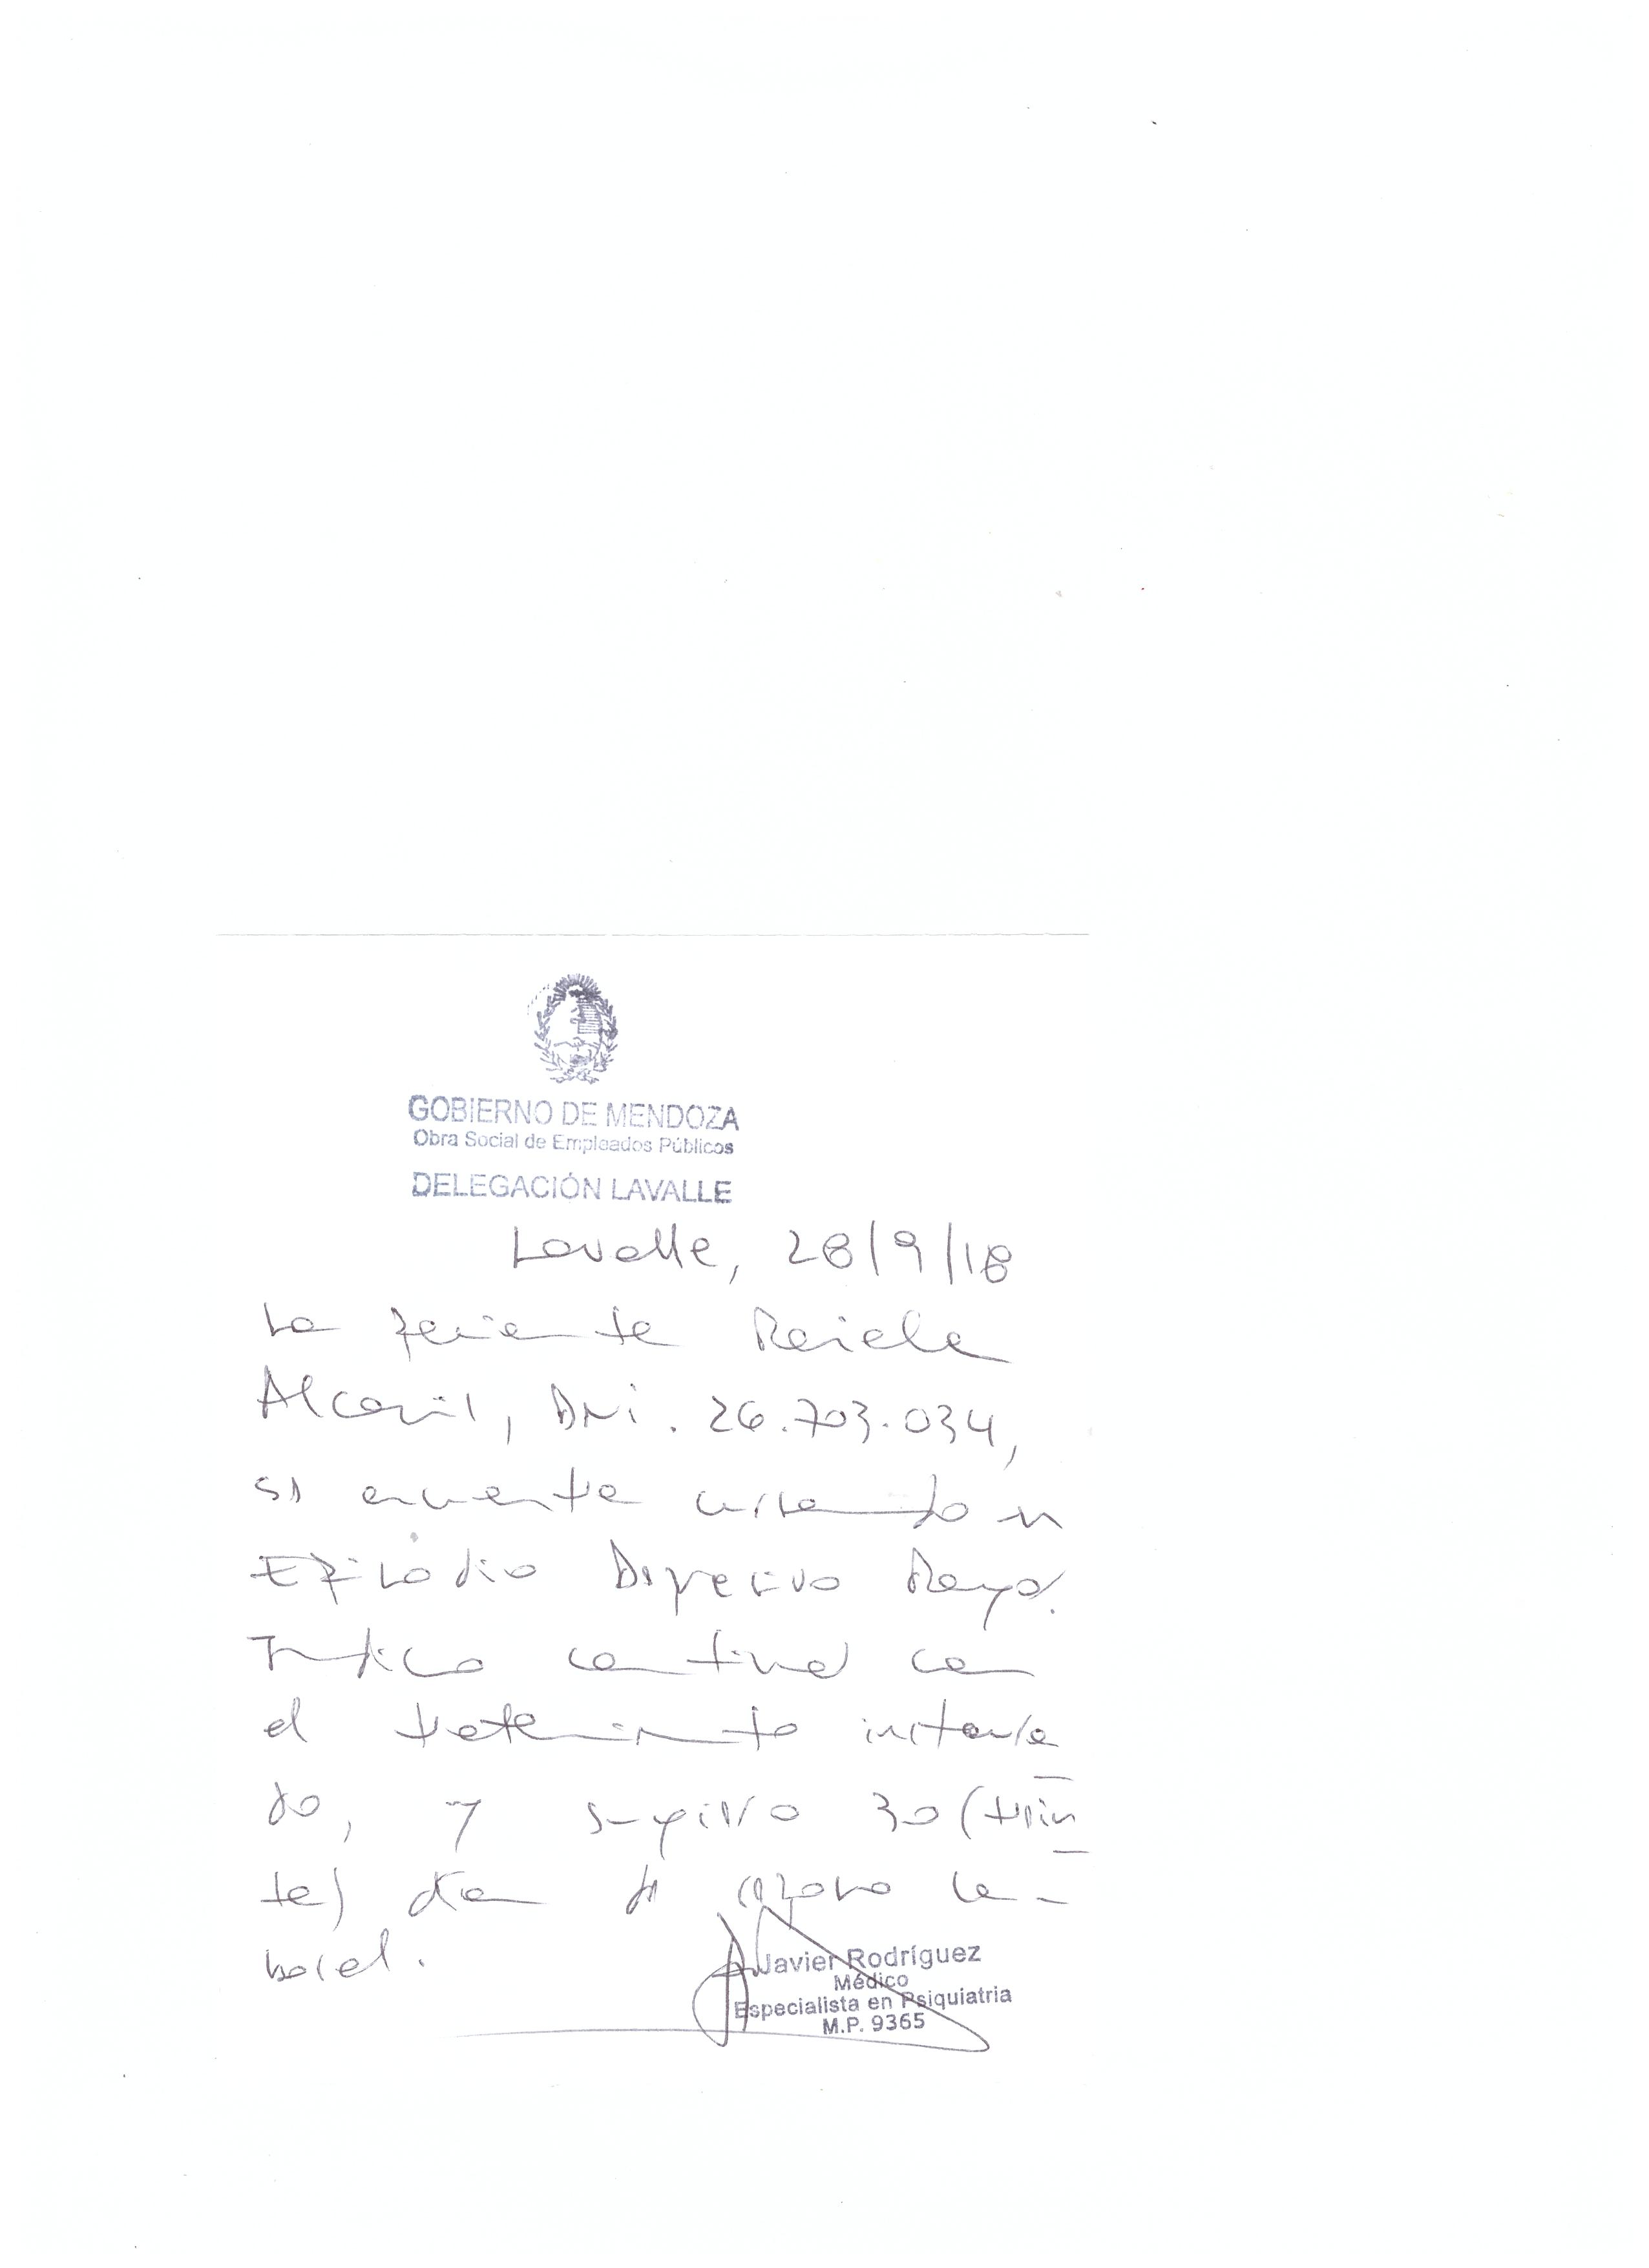 GOBIERNO DE MENDOZA
Obra Social de Empleados Públicos
DELEGACIÓN LAVALLE
Lavalle, 28/9/18
La paciente
DNI. 26.703.034,
se encuentra cursando un
Episodio Depresivo Mayor.
Indico continuar con
el tratamiento instaura
do, y sugiero 30 (trein
ta) días de reposo la-
boral.
Javier Rodríguez
Médico
Especialista en Psiquiatria
M.P. 9365